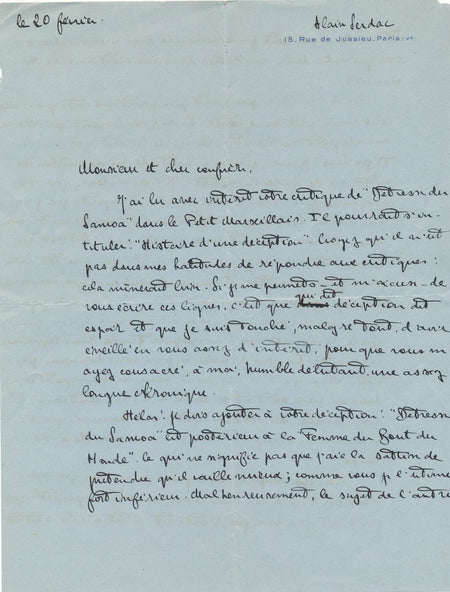 le 20 février.
Alain Serdac
15, Rue de Jussieu, Paris (Vᵉ)
Monsieur et cher confrère.
J'ai lu avec intérêt votre critique de "Détresse du
Samoa" dans le Petit Marseillais. Il pourrait s'in-
tituler: "Histoire d'une déception". Croyez qu'il n'est
pas dans mes habitudes de répondre aux critiques:
cela mènerait loin. Si je me permets - et m'excuse - de
vous écrire ces lignes, c'est que qui dit déception dit
espoir et que je suis touché, malgré tout, d'avoir
éveillé en vous assez d'intérêt, pour que vous m'
ayez consacré, à moi, humble débutant, une assez
longue chronique.
Hélas! je dois ajouter à votre déception: "Détresse
du Samoa" est postérieur à la "Femme du Bout du
Monde". Ce qui ne signifie pas que j'aie la sottise de
prétendre qu'il vaille mieux; comme vous je l'estime
fort inférieur. Malheureusement, le sujet de l'autre